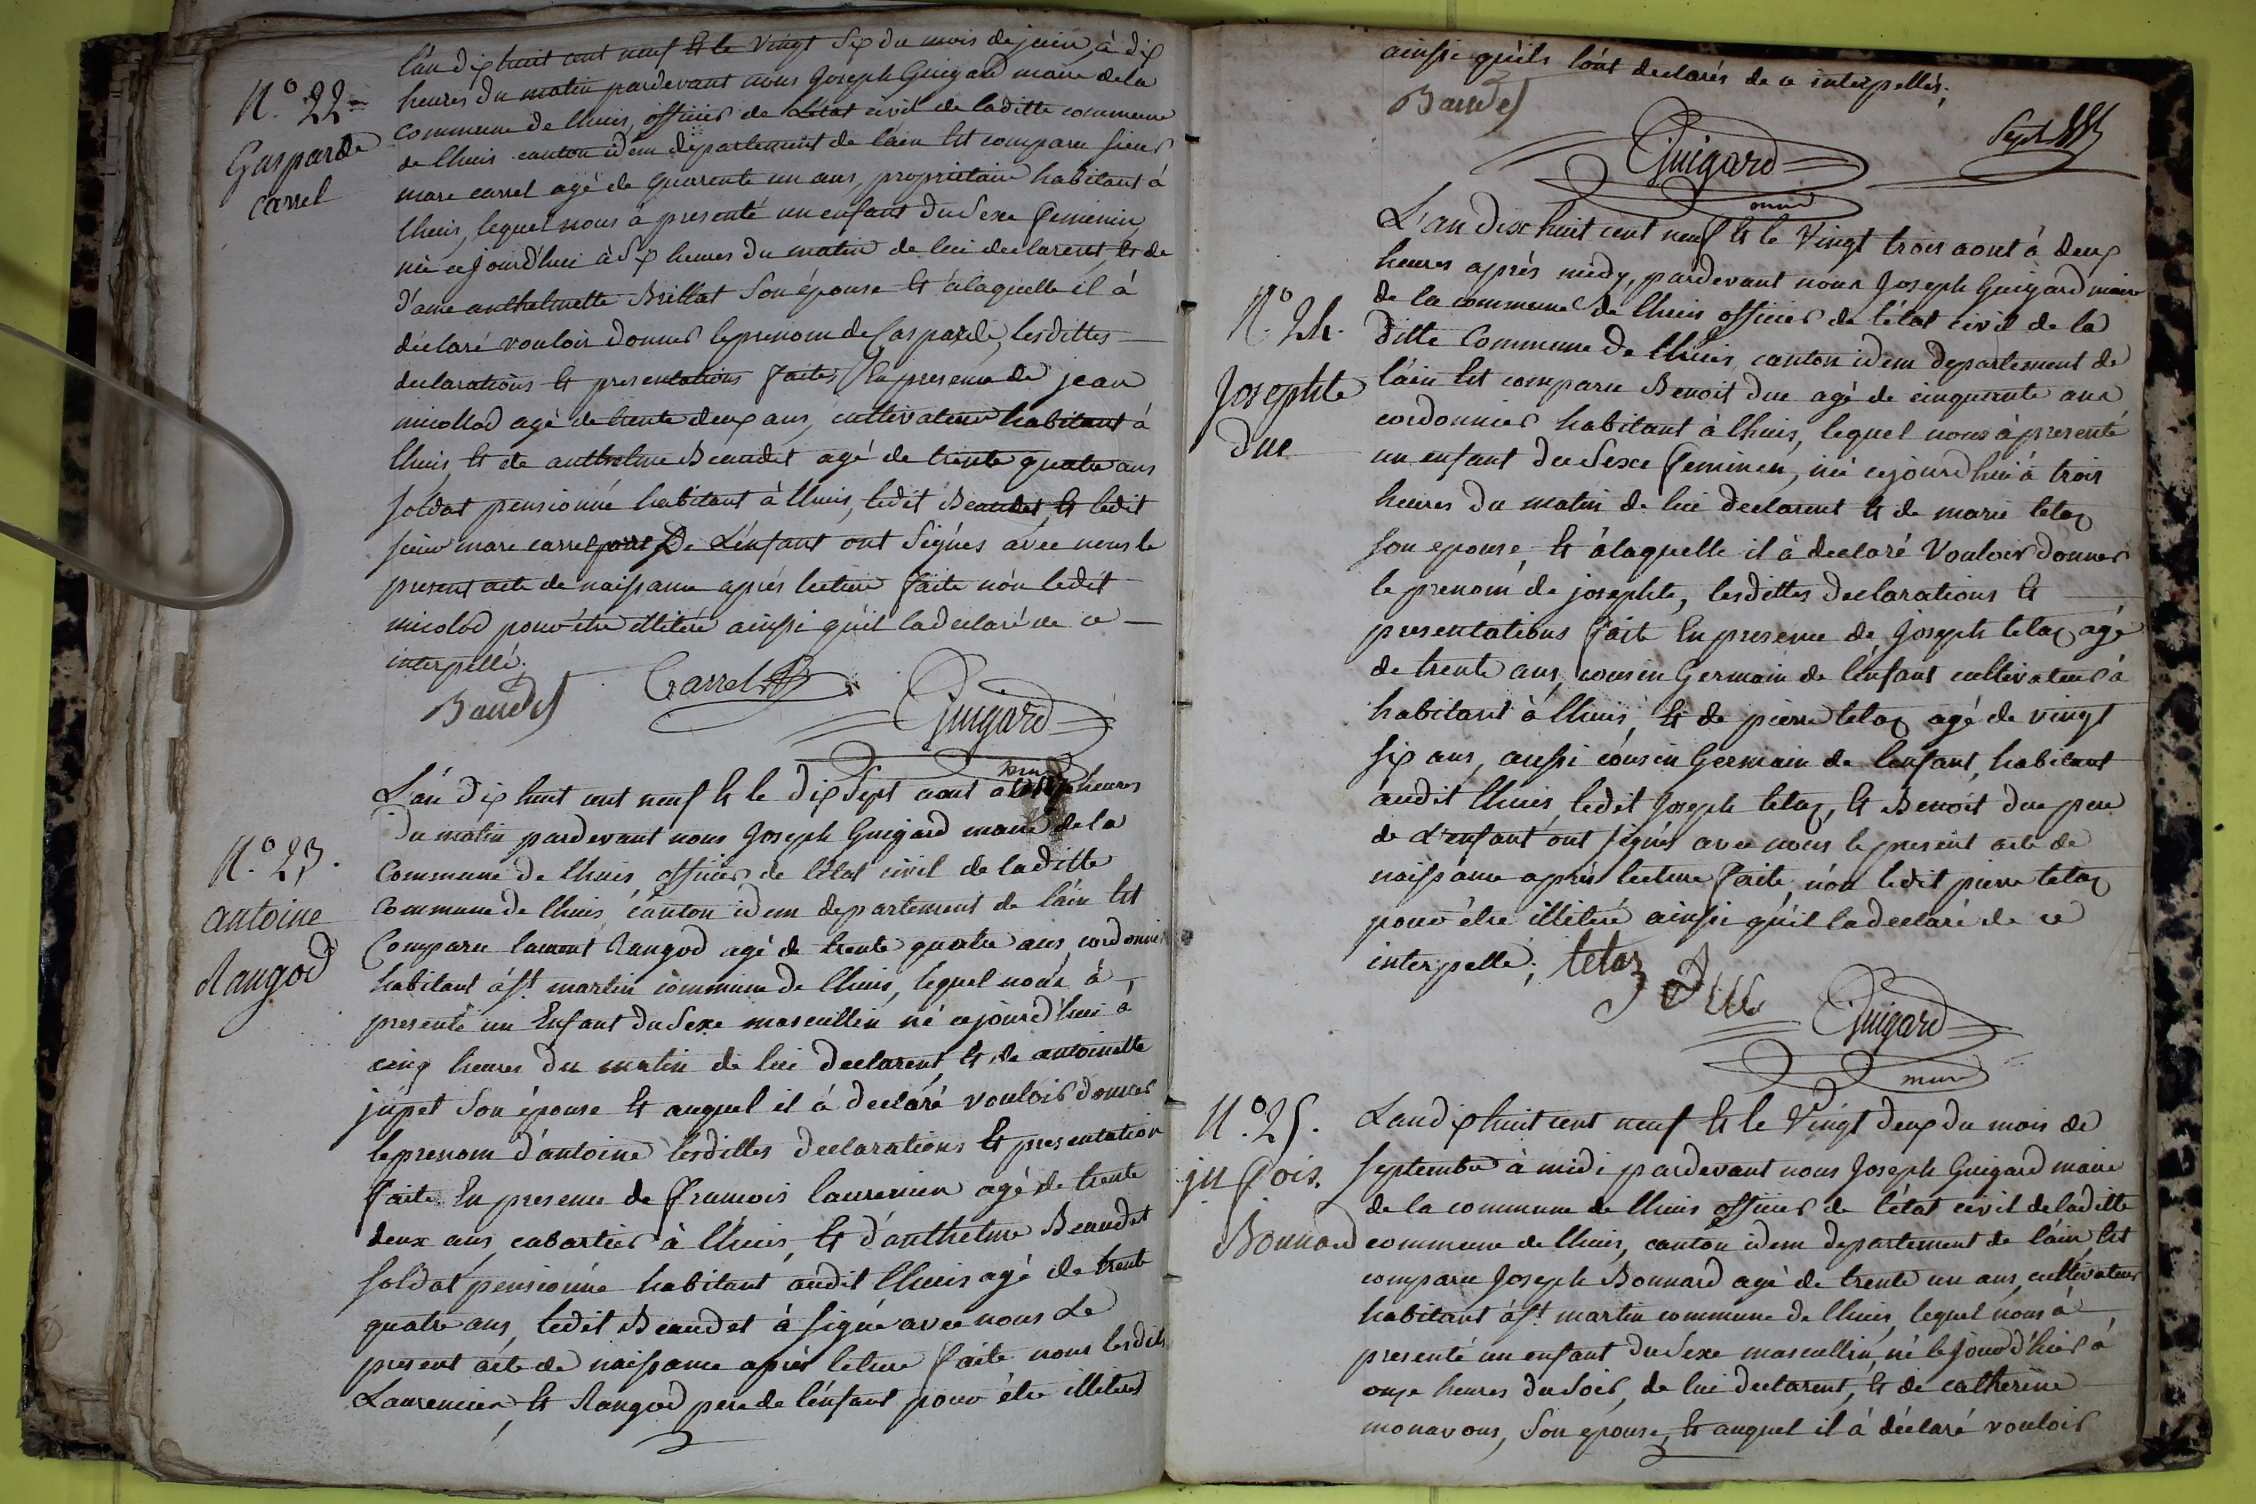 N.° 22=
Gasparde
Carrel
L'an dix huit cent neuf Et le vingt Six du mois de juin, à dix
heures du matin pardevant nous Joseph Guigard maire dela
Commune de lhuis, officier de L'état civil de laditte commune
de lhuis canton idem département de lain Est comparu sieur
marc carrel agé de quarente un ans, propriétaire habitant à
lhuis, lequel nous à presenté un enfant du Sexe feminin,
né cejourd'hui à Six heures du matin de lui declarent Et de
d'ame anthelmette Brillat Son épouse Et àlaquelle il à
déclaré vouloir donner leprenom de Gasparde, lesdittes
declarations Et presentations faites En presence de jean
micollod agé de trente deux ans, cultivateur habitant à
lhuis, Et de anthelme Beaudet agé de trente quatre ans
soldat pensionné habitant à lhuis, ledit Beaudet, Et ledit
sieur marc carrel pere De L'enfant ont Signés avec nous le
present acte de naissance aprés lecture faite nón ledit
micolod pour être illiteré ainssi qúil ladeclaré de ce
interpellé.
Baudet Carrel Guigard
maire
N.° 23.
antoine
Rangod
L'an dix huit cent neuf Et le dix Sept aout à heures
Du matin pardevant nous Joseph Guigard maire dela
Commune de lhuis officier de l'état civil de laditte
Commune de lhuis canton idem departement de láin Est
Comparu laurent Rangod agé de trente quatre ans, cordonnier
habitant à st. martin commune de lhuis, lequel nous à
presenté un Enfant du Sexe mascullin né cejourd'hui à
cinq heures du matin de lui declarent, Et de antoinette
jupet Son épouse Et auquel il à declaré vouloir donner
leprenom d'antoine lesdittes declarations Et presentation
faite En presence de francois laurencin agé de trente
deux ans, cabartier à lhuis, Et d'anthelme Beaudet
soldat pensionné habitant audit lhuis agé de trente
quatre ans, ledit Beaudet à signé avec nous Le
present acte de naissance aprés lecture faite nons lesdits
Laurencin, Et Rangod pere de l'énfant pour être illiterés
ainssi qu'ils lónt declarés de ce interpellés;
Baudet Guigard
maire
N.° 24.
Josephte
Duc
L'an dix huit cent neuf Et le Vingt trois aout à deux
heures aprés midy, pardevant nous Joseph Guigard maire
de la commune de lhuis officier de l'état civil de la
ditte Commune de lhuis, canton idem departement de
láin Est comparu Benoit duc agé de cinquante ans
cordonnier habitant à lhuis, lequel nous à presenté
un enfant du Sexe feminin, né cejourdhui à trois
heures du matin de lui declarent Et de marie telaz
son epouse, Et àlaquelle il à declaré Vouloir donner
le prenom de josephte, lesdittes declarations Et
presentations fait En presence de Joseph telaz agé
de trente ans, cousin Germain de lénfant cultivateur à
habitant à lhuis, Et de pierre telaz agé de vingt
six ans, aussi cousin Germain de lenfant, habitant
audit lhuis, ledit Joseph telaz, Et Benoit duc pere
de L'enfant ont signés avec nous le present acte de
naissance aprés lecture faite, nón ledit pierre telaz
pour être illiteré ainssi qúil ladeclaré de ce
interpellé; telaz Duc
Guigard
maire
N.° 25.
jn. fois.
Bonnard
Lan dix huit cent neuf Et le Vingt deux du mois de
Septembre à midi pardevant nous Joseph Guigard maire
de la commune de lhuis officier de l'état civil deladitte
commune de lhuis, canton idem departement de láin, Est
comparu Joseph Bonnard agé de trente un ans, cultivateur
habitant à st. martin commune de lhuis, lequel nous à
presenté un enfant du Sexe mascullin, né le jourd'hier à
onze heures du Soir, de lui declarent, Et de catherine
monavous, Son epouse, Et auquel il à déclaré vouloir